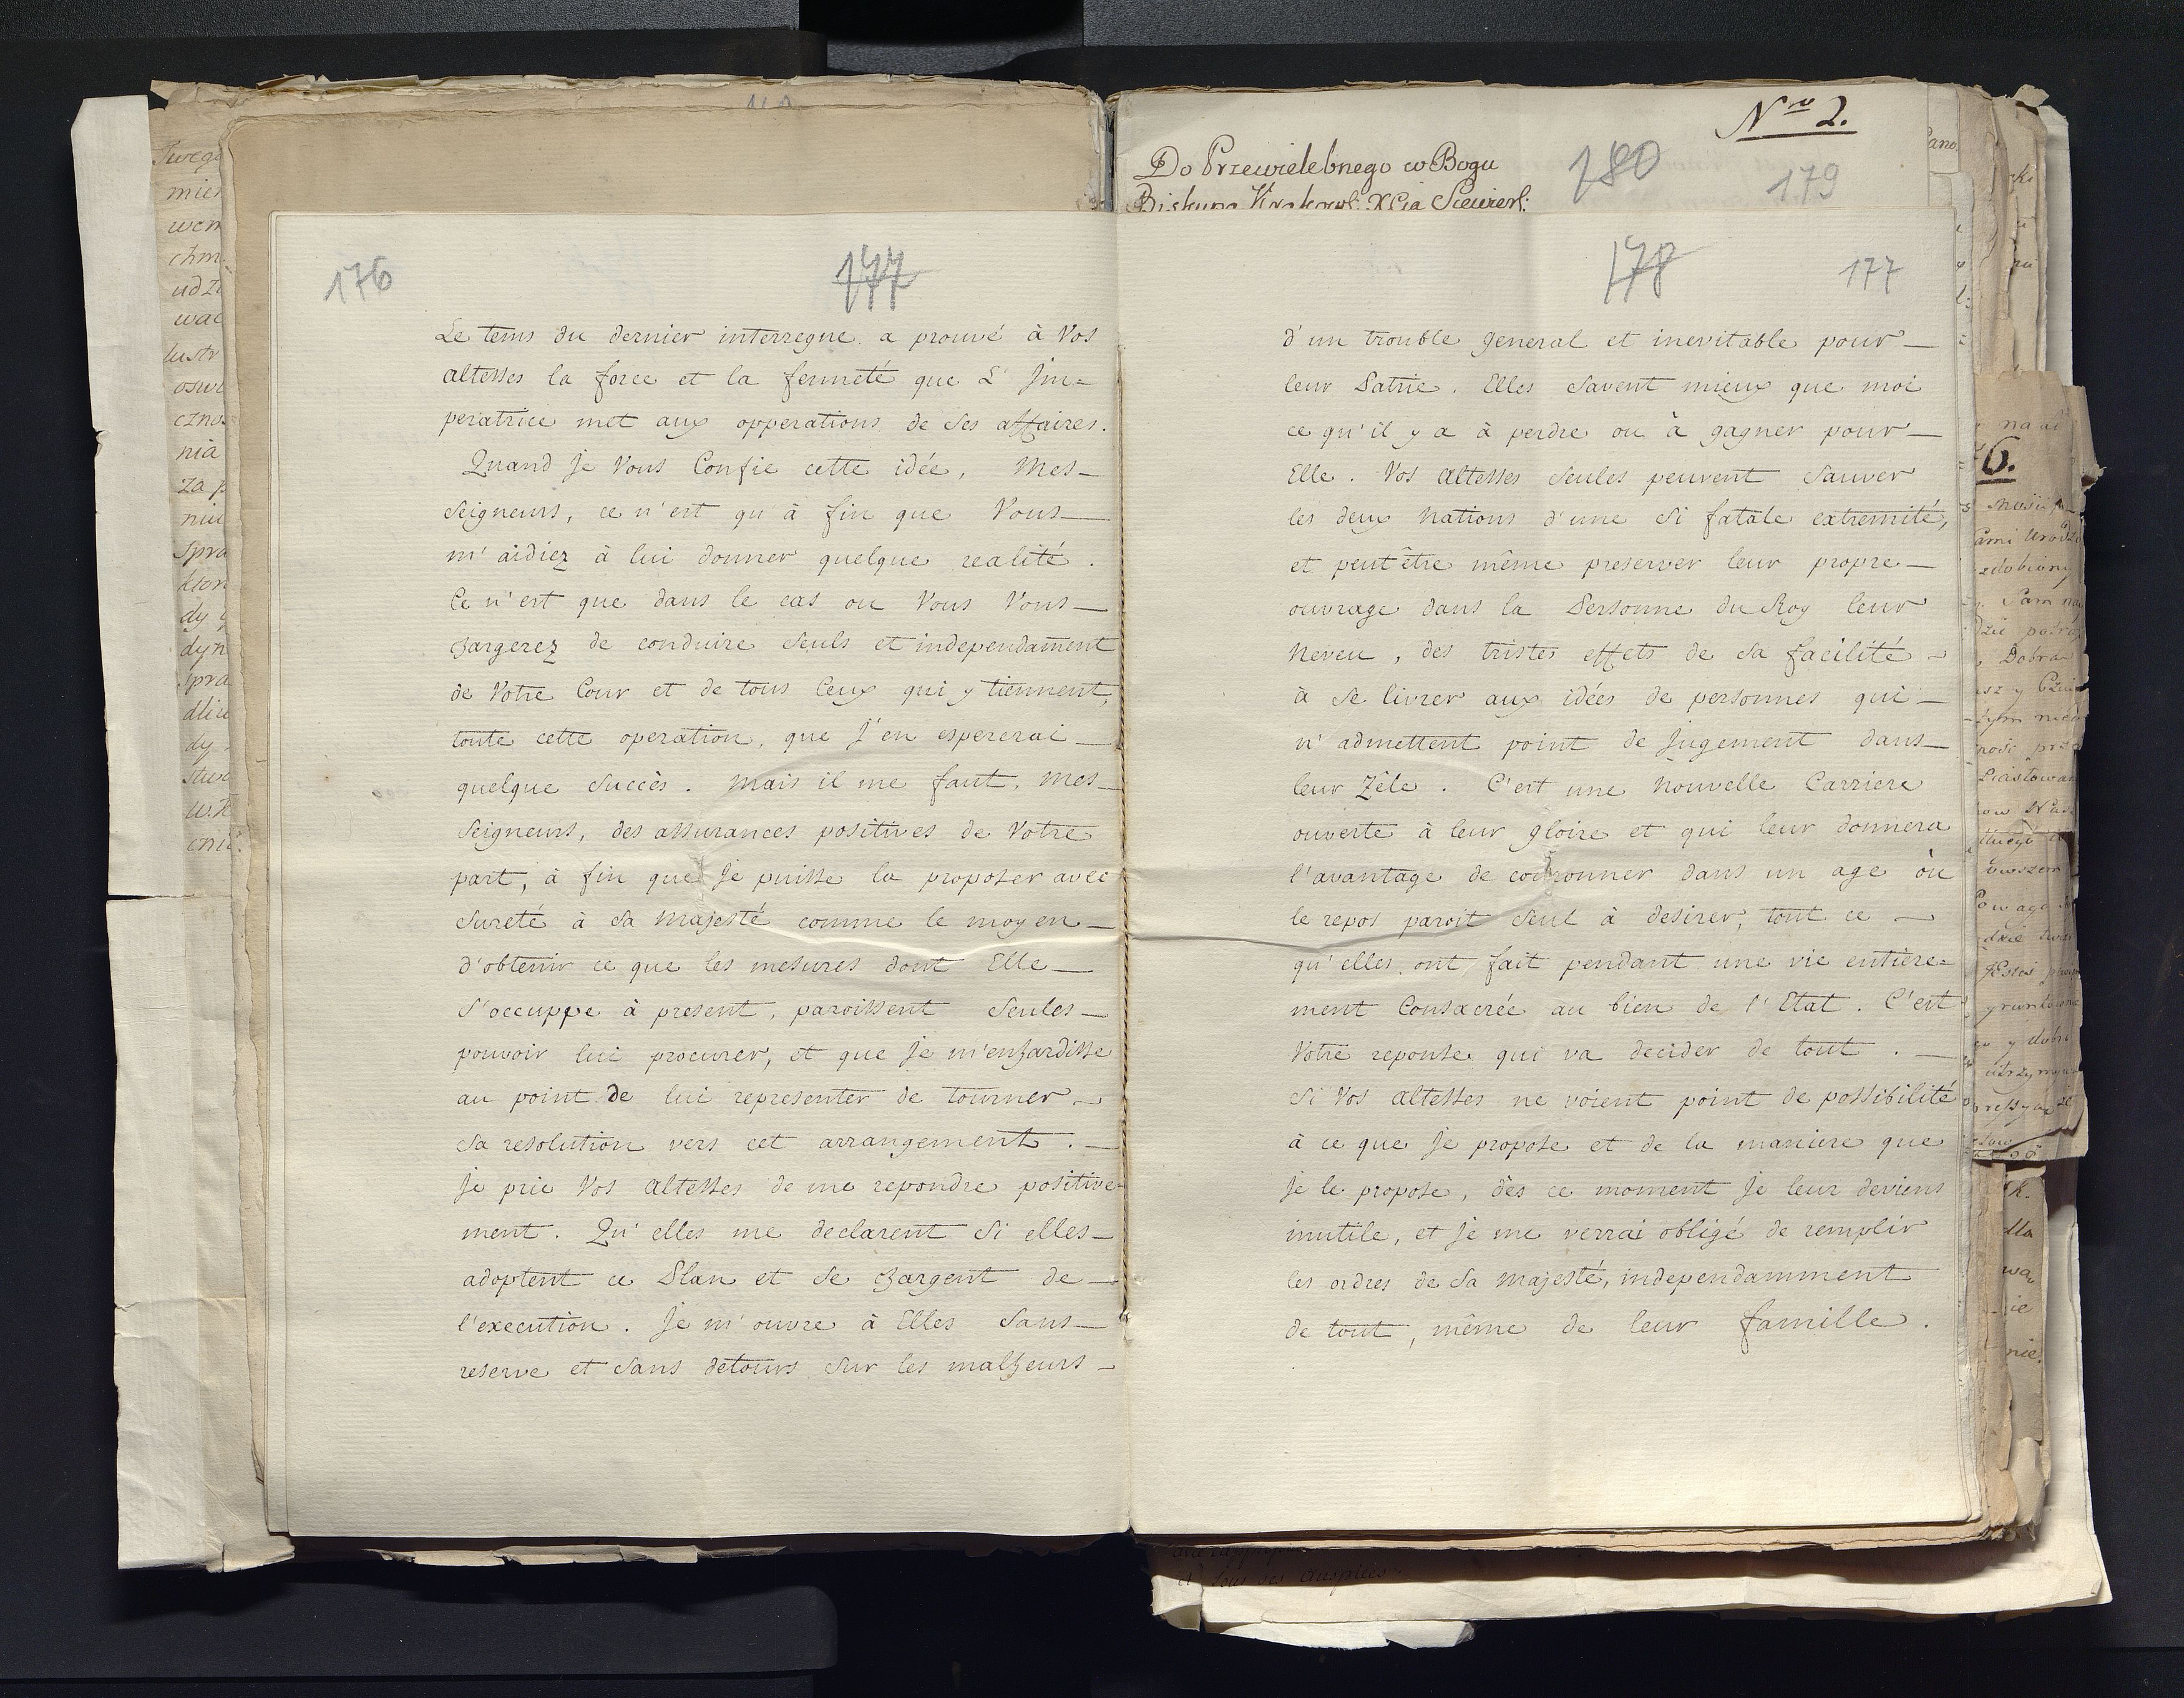 176
177
Le tems du dernier interregne a prouvé à Vos
altesses la force et la fermeté que L' Im=
peratrice met aux opperations de ses affaires.
Quand je Vous Confie cette idée, Mes_
seigneurs, ce n'est qu'à fin que Vous_
m'aidiez à lui donner quelque realité.
Ce n'est que dans le cas ou Vous Vous_
chargerez de conduire seuls et independament
de Votre Cour et de tous Ceux qui y tiennent,
toute cette operation, que j'en espererai_
quelque succès. Mais il me faut, Mes_
seigneurs, des assurances positives de Votre
part, à fin que je puisse la proposer avec
sureté à sa Majesté comme le moyen_
d'obtenir ce que les mesures dont Elle_
s'occuppe à present, paroissent seules_
pouvoir lui procurer, et que je m'enhardisse
au point de lui representer de tourner_
sa resolution vers cet arrangement._
je prie Vos altesses de me repondre positive=
ment. Qu'elles me declarent si elles_
adoptent ce Plan et se chargent de_
l'execution. je m'ouvre à Elles sans_
reserve et sans detours sur les malheurs_
Nro 2.
Do Przewielebnego w Bogu
180
179
Biskupa Krakowl: XCia Siewierl:
178
177
d'un trouble general et inevitable pour_
leur Patrie. Elles savent mieux que moi
ce qu'il y a à perdre ou à gagner pour_
Elle. Vos altesses seules peuvent sauver
les deux Nations d'une si fatale extremité,
et peut être même preserver leur propre_
ouvrage dans la Personne du Roy leur
Neveu, des tristes effets de sa facilité_
à se livrer aux idées de personnes qui_
n'admettent point de jugement dans_
leur Zêle. C'est une Nouvelle Carriere
ouverte à leur gloire et qui leur donnera
l'avantage de couronner dans un age où
le repos paroit seul à desirer, tout ce_
qu'elles ont fait pendant une vie entière=
ment Consacrée au bien de l'Etat. C'est
Votre reponse qui va decider de tout._
si Vos altesses ne voient point de possibilité
à ce que je propose et de la maniere que
je le propose, dès ce moment je leur deviens
inutile, et je me verrai obligé de remplir
les ordres de sa Majesté, independamment
de tout, même de leur famille.
6.